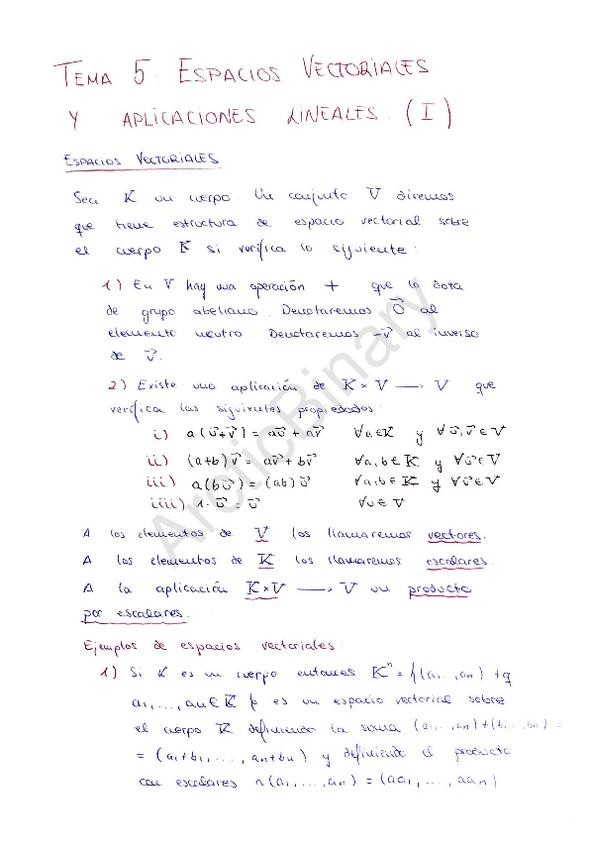 TEMA 5: ESPACIOS VECTORIALES
Y APLICACIONES LINEALES. (I)
ESPACIOS VECTORIALES
Sea K un cuerpo. Un conjunto V diremos
que tiene estructura de espacio vectorial sobre
el cuerpo K si verifica lo siguiente:
1) En V hay una operación + que la dota
de grupo abeliano. Denotaremos 0⃗ al
elemento neutro. Denotaremos -v⃗ al inverso
de v⃗.
2) Existe una aplicación de K×V → V que
verifica las siguientes propiedades:
i) a(u⃗+v⃗) = au⃗ + av⃗ ∀a∈K y ∀u⃗,v⃗∈V
ii) (a+b)v⃗ = av⃗ + bv⃗ ∀a,b∈K y ∀v⃗∈V
iii) a(bu⃗) = (ab)u⃗ ∀a,b∈K y ∀u⃗∈V
iiii) 1·u⃗ = u⃗ ∀u∈V
A los elementos de V los llamaremos vectores.
A los elementos de K los llamaremos escalares.
A la aplicación K×V → V un producto
por escalares.
Ejemplos de espacios vectoriales:
1) Si K es un cuerpo entonces Kⁿ = {(a₁,..,an) tq
a₁,...,an∈K} es un espacio vectorial sobre
el cuerpo K definiendo la suma (a₁,..,an)+(b₁..,bn) =
= (a₁+b₁,...,an+bn) y definiendo el producto
con escalares a(a₁,...,an) = (aa₁,...,aan)
ArcticBinary